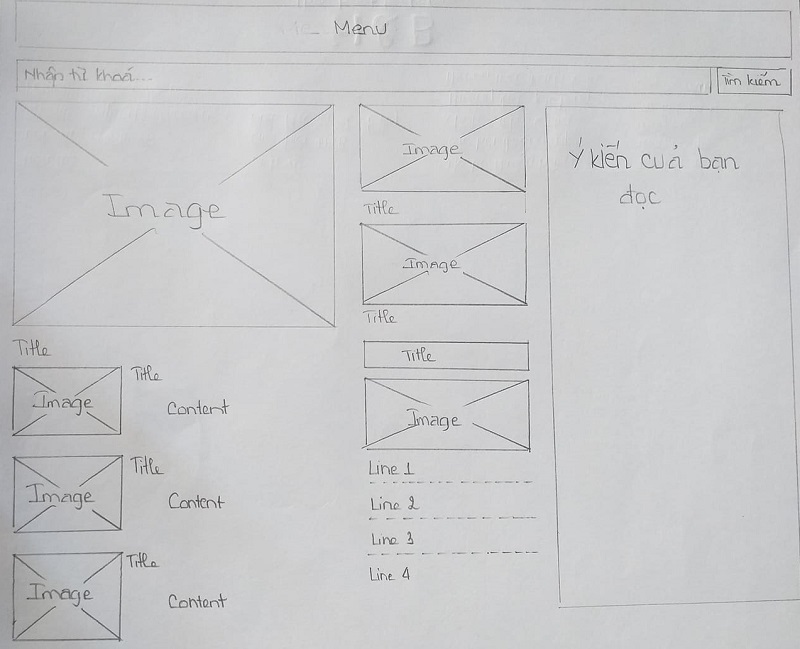 Menu
Nhập từ khoá...
Tìm kiếm
Image
Title
Image
Title
Content
Image
Title
Content
Image
Title
Content
Image
Title
Image
Title
Title
Image
Line 1
Line 2
Line 3
Line 4
Ý kiến cuả bạn
đọc